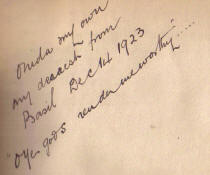 Onida my own
my dearest from
Basil Dec 14 1923
"O ye gods render me worthy".....